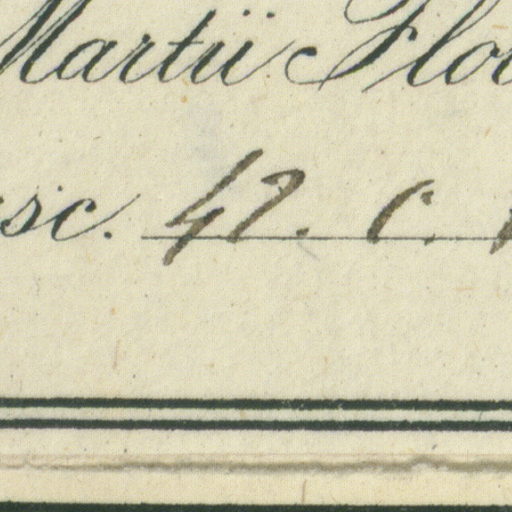 Martii Flo
sc. 42. c.